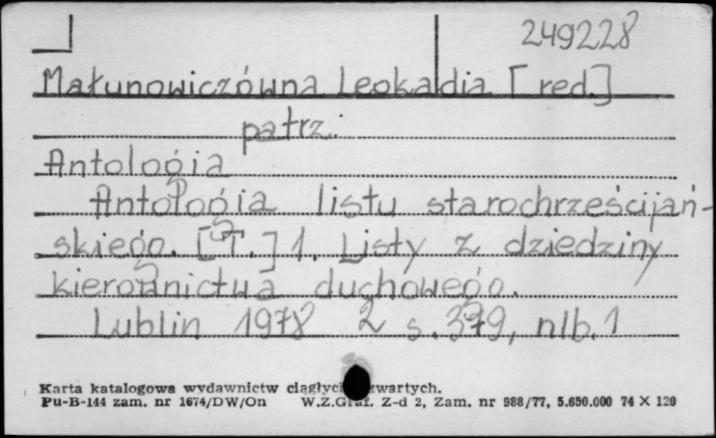 249228
Małunowiczówna Leokadia [red.]
patrz:
Antologia
Antologia listu starochrześcijań-
skiego. [T.] 1. Listy z dziedziny
kierownictwa duchowego.
Lublin 1978 2 s. 379, nlb. 1
Karta katalogowa wydawnictw ciągłych zwartych.
Pu-B-144 zam. nr 1674/DW/On W.Z.Graf. Z-d 2, Zam. nr 988/77, 5.650.000 74 X 120